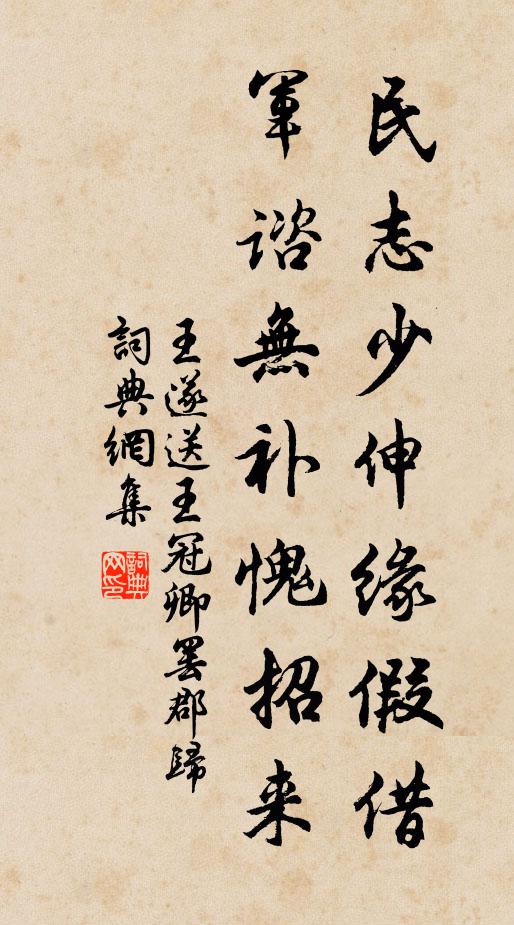 民志少伸缘假借
軍谘無补愧招来
王遂送王冠卿罢郡歸
詞典網集
詞典網印